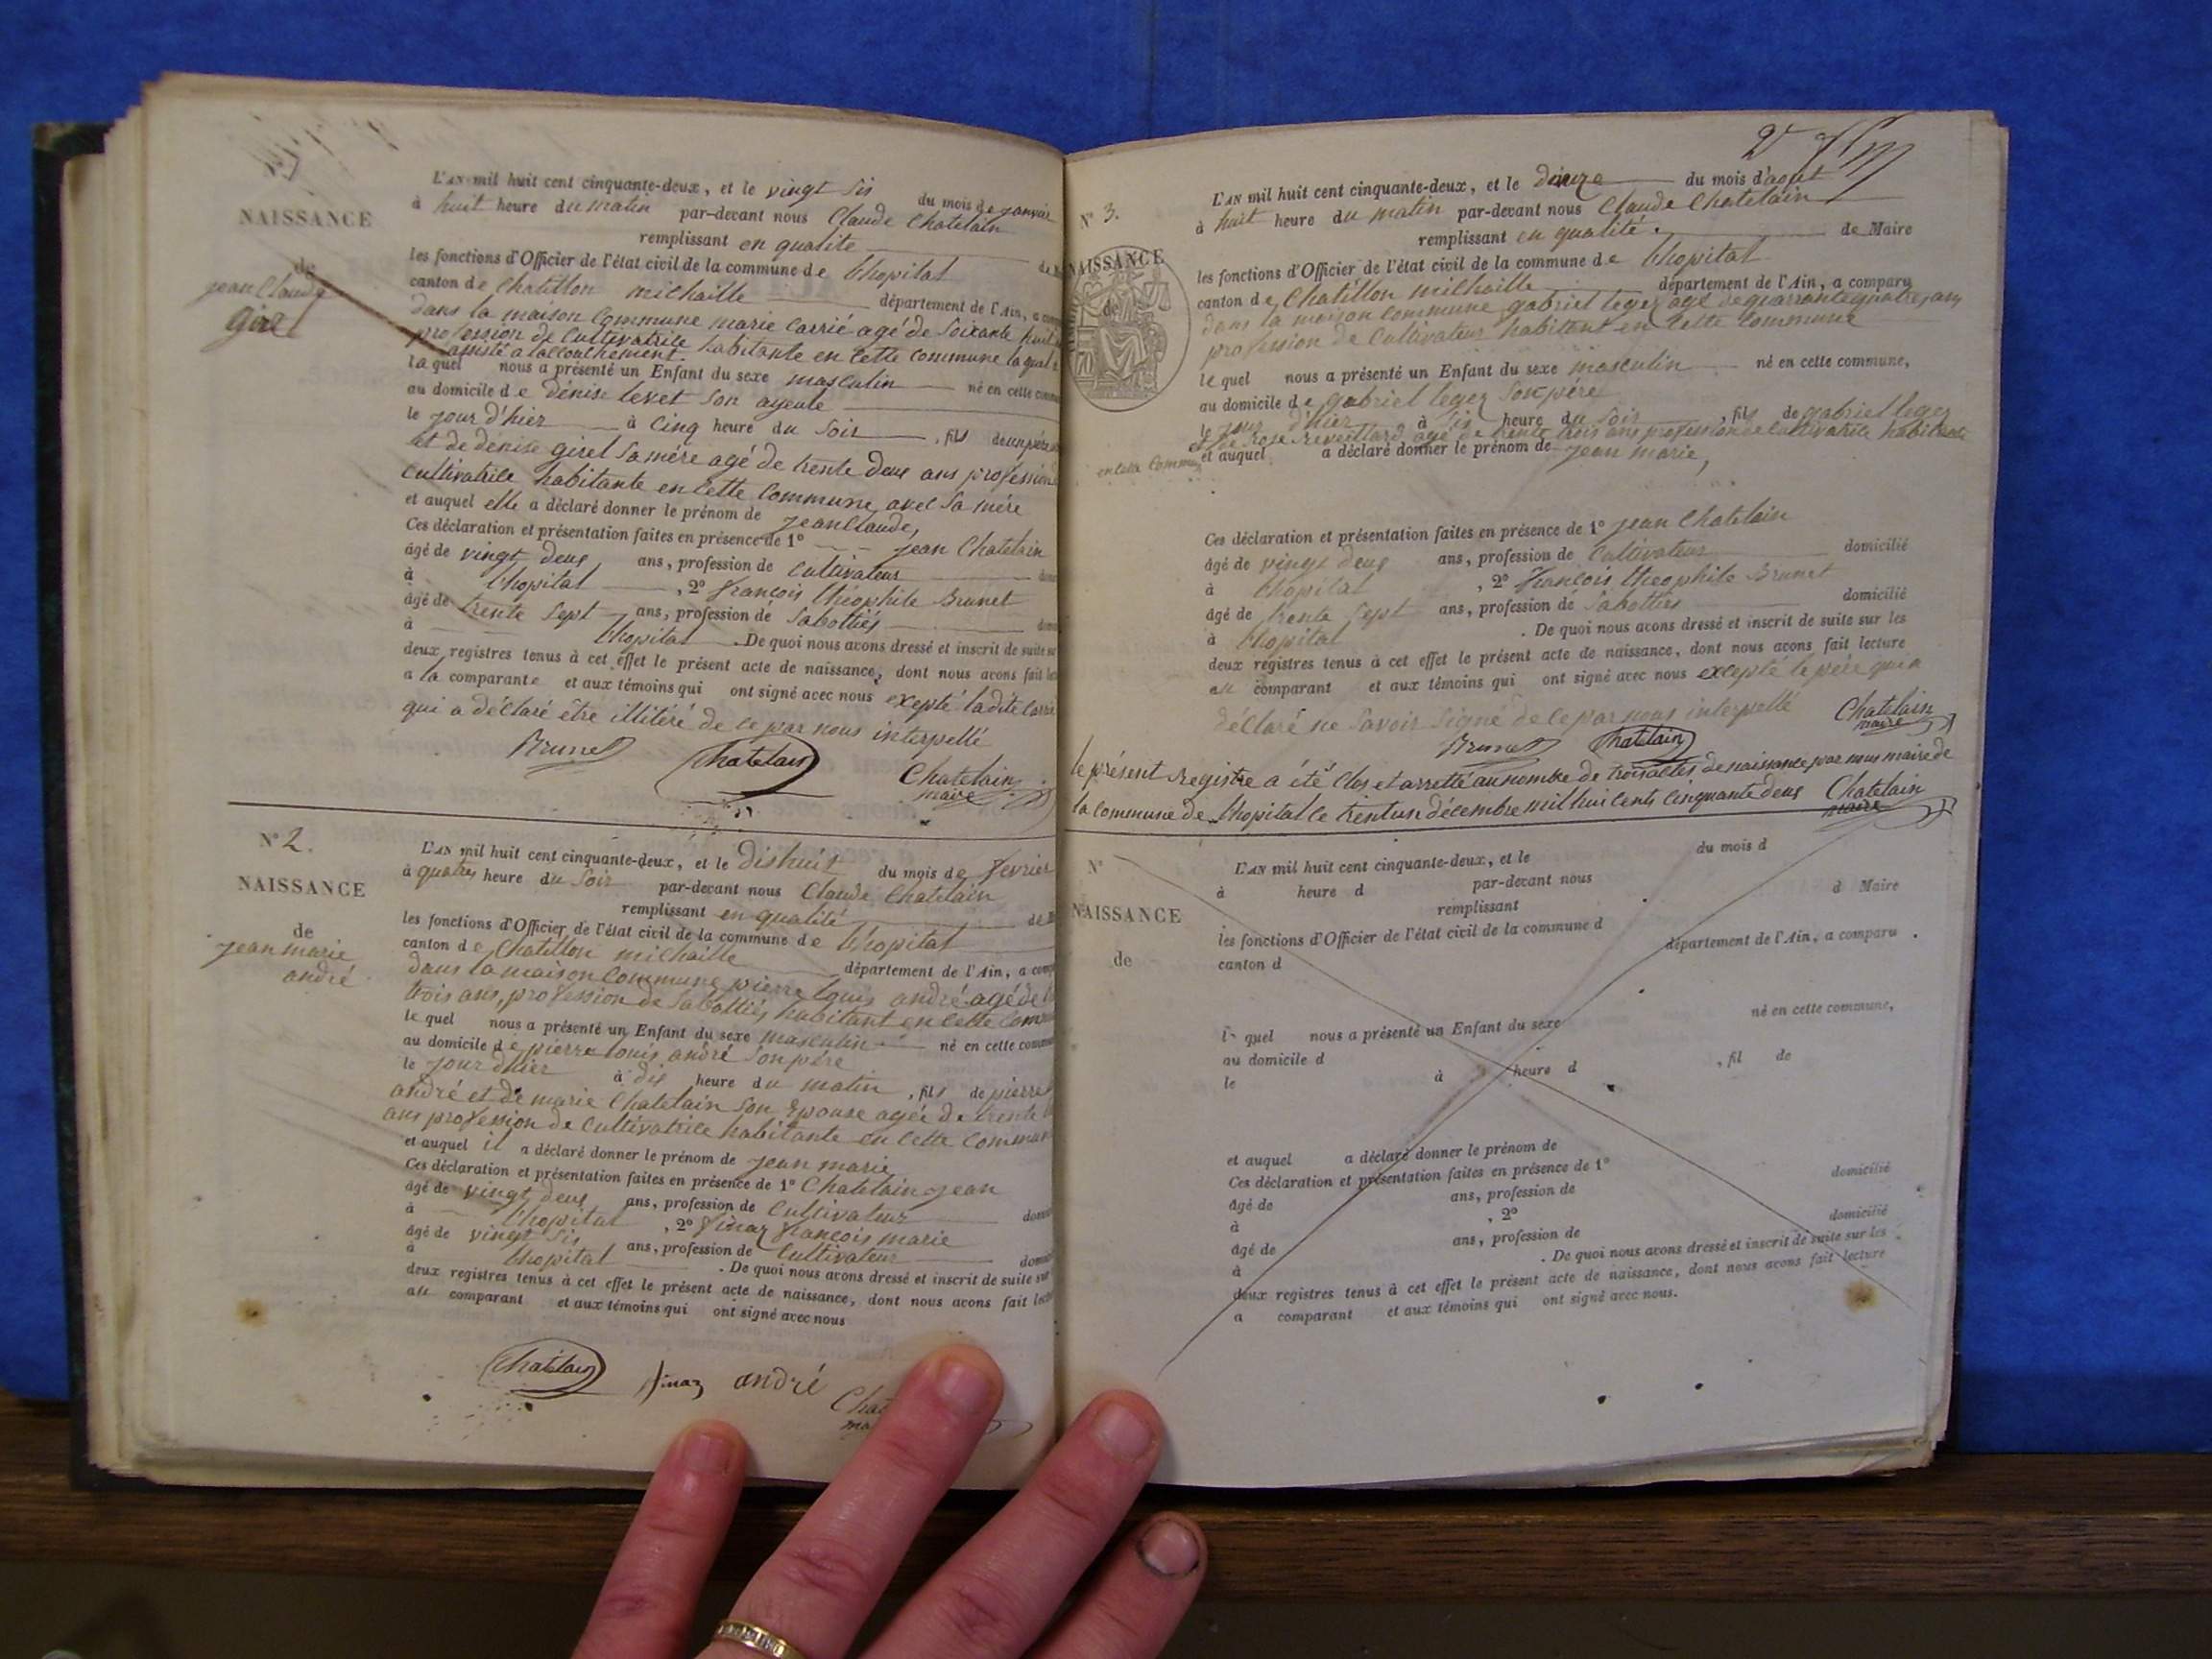 NAISSANCE
de
jean Claude
girel
L'AN mil huit cent cinquante-deux, et le vingt sis du mois de janvier
à huit heure du matin par-devant nous Claude Chatelain
remplissant en qualite
les fonctions d'Officier de l'état civil de la commune de l'hopital
canton de Chatillon michaille département de l'Ain, a
dans la maison Commune marie Carrié agé de Soixante huit
profession de Cultivatrice habitante en cette commune laquel
assisté a l'accouchement.
laquel nous a présenté un Enfant du sexe masculin né en cette
au domicile de dénise levet son ayeule
le jour d'hier à Cinq heure du Soir , fils
et de denise girel Sa mére agé de trente deus ans profession
Cultivatrice habitante en cette Commune avec Sa mére
et auquel elle a déclaré donner le prénom de jean Claude,
Ces déclaration et présentation faites en présence de 1° jean Chatelain
âgé de vingt deus ans, profession de Cultivateur
à l'hopital , 2° françois théophile Brunet
âgé de trente Sept ans, profession de Sabottiés
à l'hopital . De quoi nous avons dressé et inscrit de suite
deux registres tenus à cet effet le présent acte de naissance, dont nous avons fait
a la comparante et aux témoins qui ont signé avec nous exepté ladite Carrié
qui a déclaré être illitéré de ce par nous interpellé
Brunet Chatelain Chatelain
maire
N° 2.
NAISSANCE
de
jean marie
andré
L'AN mil huit cent cinquante-deux, et le dishuit du mois de fevrier
à quatres heure du Soir par-devant nous Claude Chatelain
remplissant en qualité
les fonctions d'Officier de l'état civil de la commune de l'hopital
canton de Chatillon michaille département de l'Ain, a
dans la maison Commune pierre louis andré agé de
trois ans, profession de Sabottiés habitant en cette
le quel nous a présenté un Enfant du sexe masculin né en cette
au domicile de pierre louis andré Son pére
le jour d'hier à dis heure du matin , fils de pierre
andré et de marie Chatelain Son Epouse agée de trente
ans profession de Cultivatrice habitante en cette
et auquel il a déclaré donner le prénom de jean marie
Ces déclaration et présentation faites en présence de 1° Chatelain jean
âgé de vingt deus ans, profession de Cultivateur
à l'hopital , 2° finaz françois marie
âgé de vingt Sis ans, profession de Cultivateur
à l'hopital . De quoi nous avons dressé et inscrit de suite
deux registres tenus à cet effet le présent acte de naissance, dont nous avons fait
au comparant et aux témoins qui ont signé avec nous
Chatelain finaz andré
N° 3.
NAISSANCE
de
L'AN mil huit cent cinquante-deux, et le du mois d'aout
à huit heure du matin par-devant nous Claude Chatelain
remplissant en qualité. de Maire
les fonctions d'Officier de l'état civil de la commune de l'hopital
canton de Chatillon michaille département de l'Ain, a comparu
dans la maison commune gabriel leger agé de quarrante quatres ans
profession de Cultivateur habitant en cette commune
lequel nous a présenté un Enfant du sexe masculin né en cette commune,
au domicile de gabriel leger Son pére
le jour d'hier à sis heure du Soir , fils de gabriel leger
de Rose Reveillard agé de trente trois ans profession de Cultivatrice habitante
en cette Commune
et auquel a déclaré donner le prénom de jean marie,
Ces déclaration et présentation faites en présence de 1° jean Chatelain
âgé de vingt deus ans, profession de Cultivateur domicilié
à l'hopital , 2° françois théophile Brunet
âgé de trente Sept ans, profession de Sabottiés domicilié
à l'hopital . De quoi nous avons dressé et inscrit de suite sur les
deux registres tenus à cet effet le présent acte de naissance, dont nous avons fait lecture
au comparant et aux témoins qui ont signé avec nous excepté le pére qui a
déclaré ne Savoir Signé de ce par nous interpellé Chatelain
maire
Brunet Chatelain
le présent registre a été Clos et arretté au nombre de trois actes de naissance par nous maire de
la commune de l'hopital le trentun décembre mil huit cents Cinquante deus Chatelain
maire
N°
NAISSANCE
de
L'AN mil huit cent cinquante-deux, et le du mois d
à heure d par-devant nous
remplissant d Maire
les fonctions d'Officier de l'état civil de la commune d
canton d département de l'Ain, a comparu
l quel nous a présenté un Enfant du sexe né en cette commune,
au domicile d
le à heure d , fil de
et auquel a déclaré donner le prénom de
Ces déclaration et présentation faites en présence de 1°
âgé de ans, profession de domicilié
à , 2°
âgé de ans, profession de domicilié
à . De quoi nous avons dressé et inscrit de suite sur les
deux registres tenus à cet effet le présent acte de naissance, dont nous avons fait lecture
a comparant et aux témoins qui ont signé avec nous.